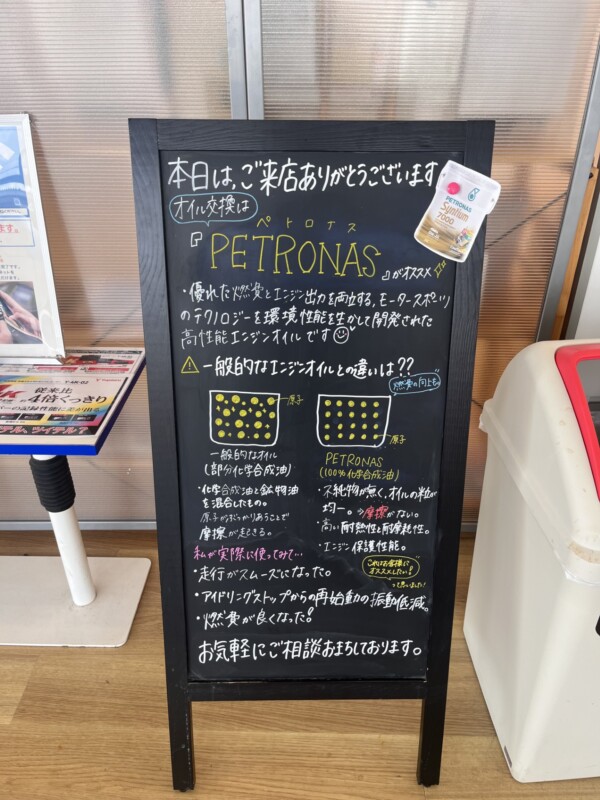 本日は、ご来店ありがとうございます
オイル交換は
ペトロナス
『PETRONAS』がオススメ
PETRONAS
Syntium
7000
・優れた燃費とエンジン出力を両立する、モータースポーツ
のテクノロジーを環境性能を生かして開発された
高性能エンジンオイルです
一般的なエンジンオイルとの違いは??
燃費の向上も
原子
原子
一般的なオイル
(部分化学合成油)
・化学合成油と鉱物油
を混合したもの。
原子がぶつかりあうことで
摩擦が起きる。
PETRONAS
(100%化学合成油)
・不純物が無く、オイルの粒が
均一。⇒摩擦がない。
・高い耐熱性と耐摩耗性。
・エンジン保護性能。
私が実際に使ってみて…
これはお客様に
オススメしたい!
って思いました!
・走行がスムーズになった。
・アイドリングストップからの再始動の振動低減。
・燃費が良くなった!
お気軽にご相談おまちしております。
従来比
約4倍くっきり